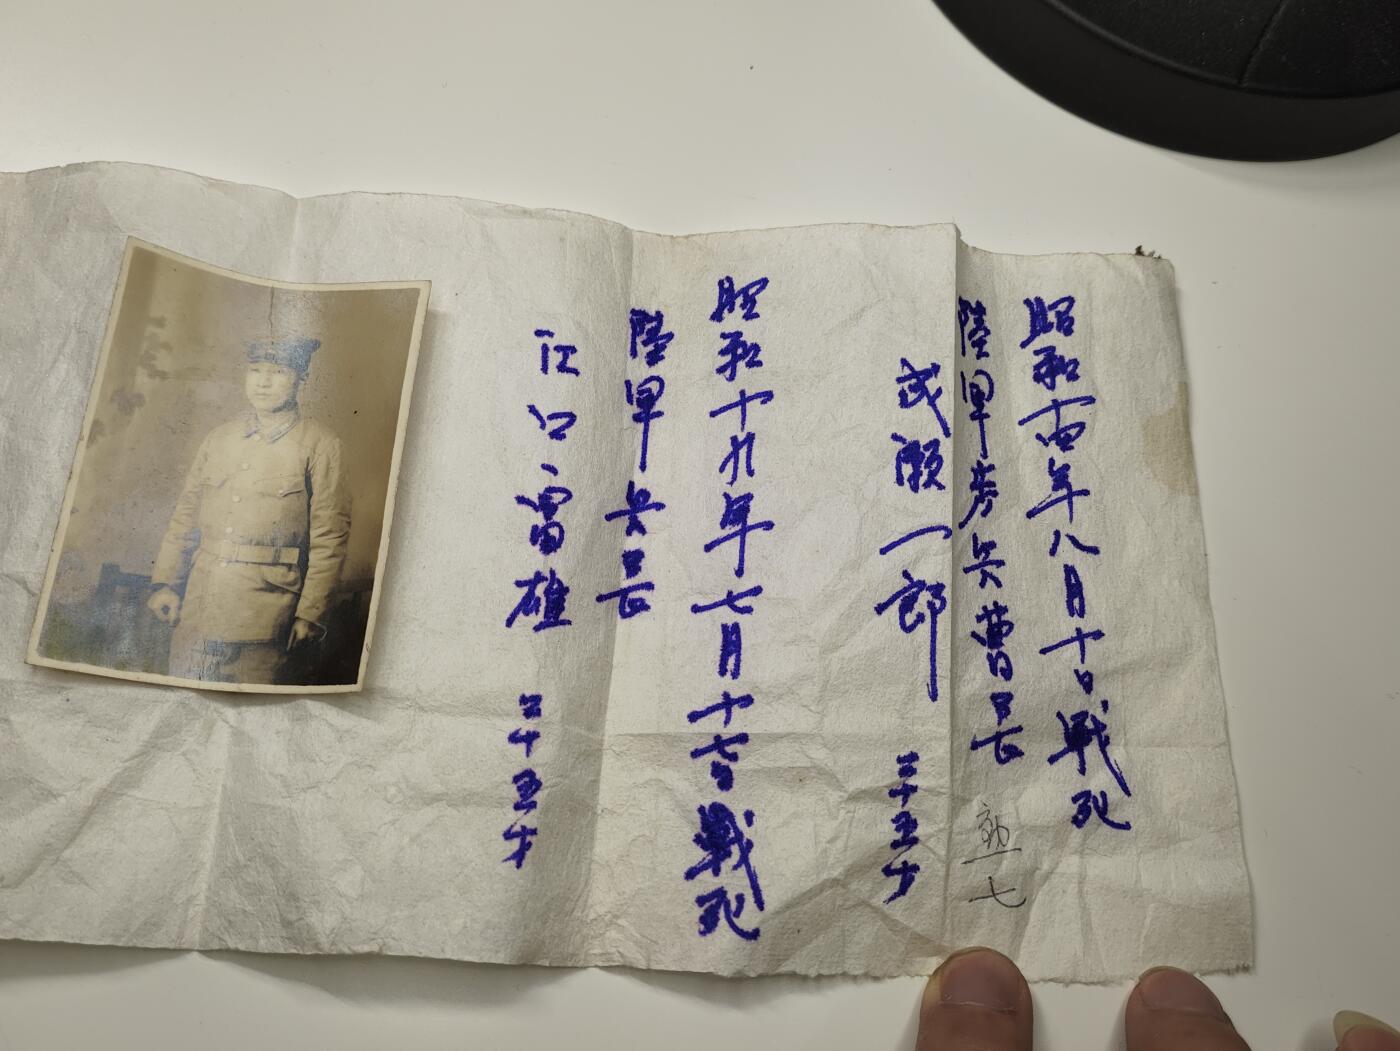 昭和十四年八月十日戦死
陸軍歩兵曹長 勲七
成瀬一郎 三十五才
昭和十九年七月十七日戦死
陸軍兵長
江口富雄 三十五才